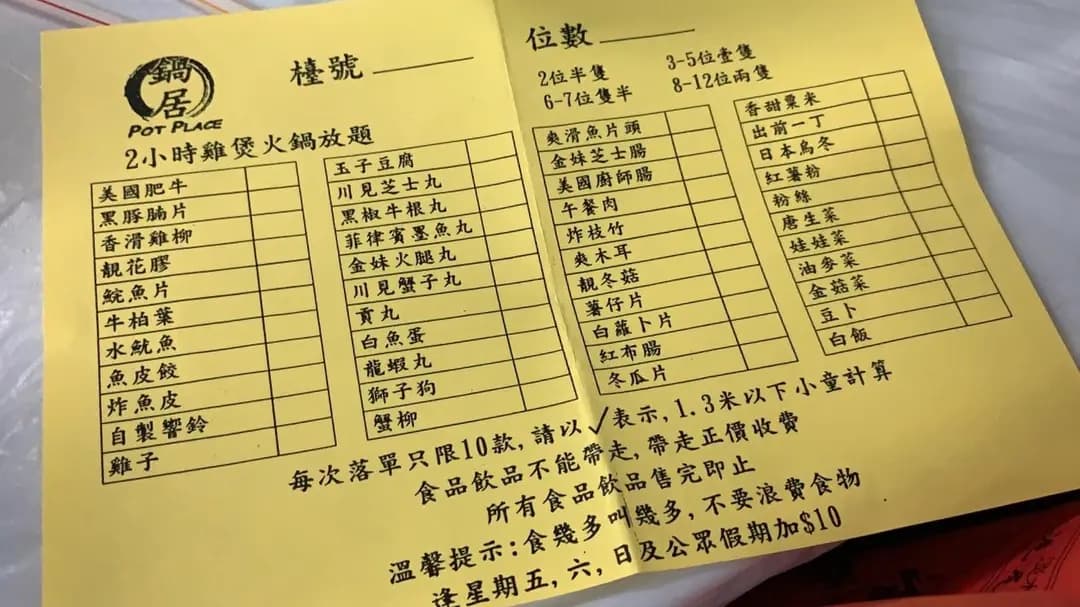 鍋居
POT PLACE
檯號
位數
2位半隻
3-5位壹隻
6-7位隻半
8-12位兩隻
2小時雞煲火鍋放題
美國肥牛
黑豚腩片
香滑雞柳
靚花膠
鯇魚片
牛柏葉
水魷魚
魚皮餃
炸魚皮
自製響鈴
雞子
玉子豆腐
川見芝士丸
黑椒牛根丸
菲律賓墨魚丸
金妹火腿丸
川見蟹子丸
貢丸
白魚蛋
龍蝦丸
獅子狗
蟹柳
爽滑魚片頭
金妹芝士腸
美國廚師腸
午餐肉
炸枝竹
爽木耳
靚冬菇
薯仔片
白蘿卜片
紅布腸
冬瓜片
香甜粟米
出前一丁
日本烏冬
紅薯粉
粉絲
唐生菜
娃娃菜
油麥菜
金菇菜
豆卜
白飯
每次落單只限10款,請以✓表示,1.3米以下小童計算
食品飲品不能帶走,帶走正價收費
所有食品飲品售完即止
溫馨提示:食幾多叫幾多,不要浪費食物
逢星期五,六,日及公眾假期加$10